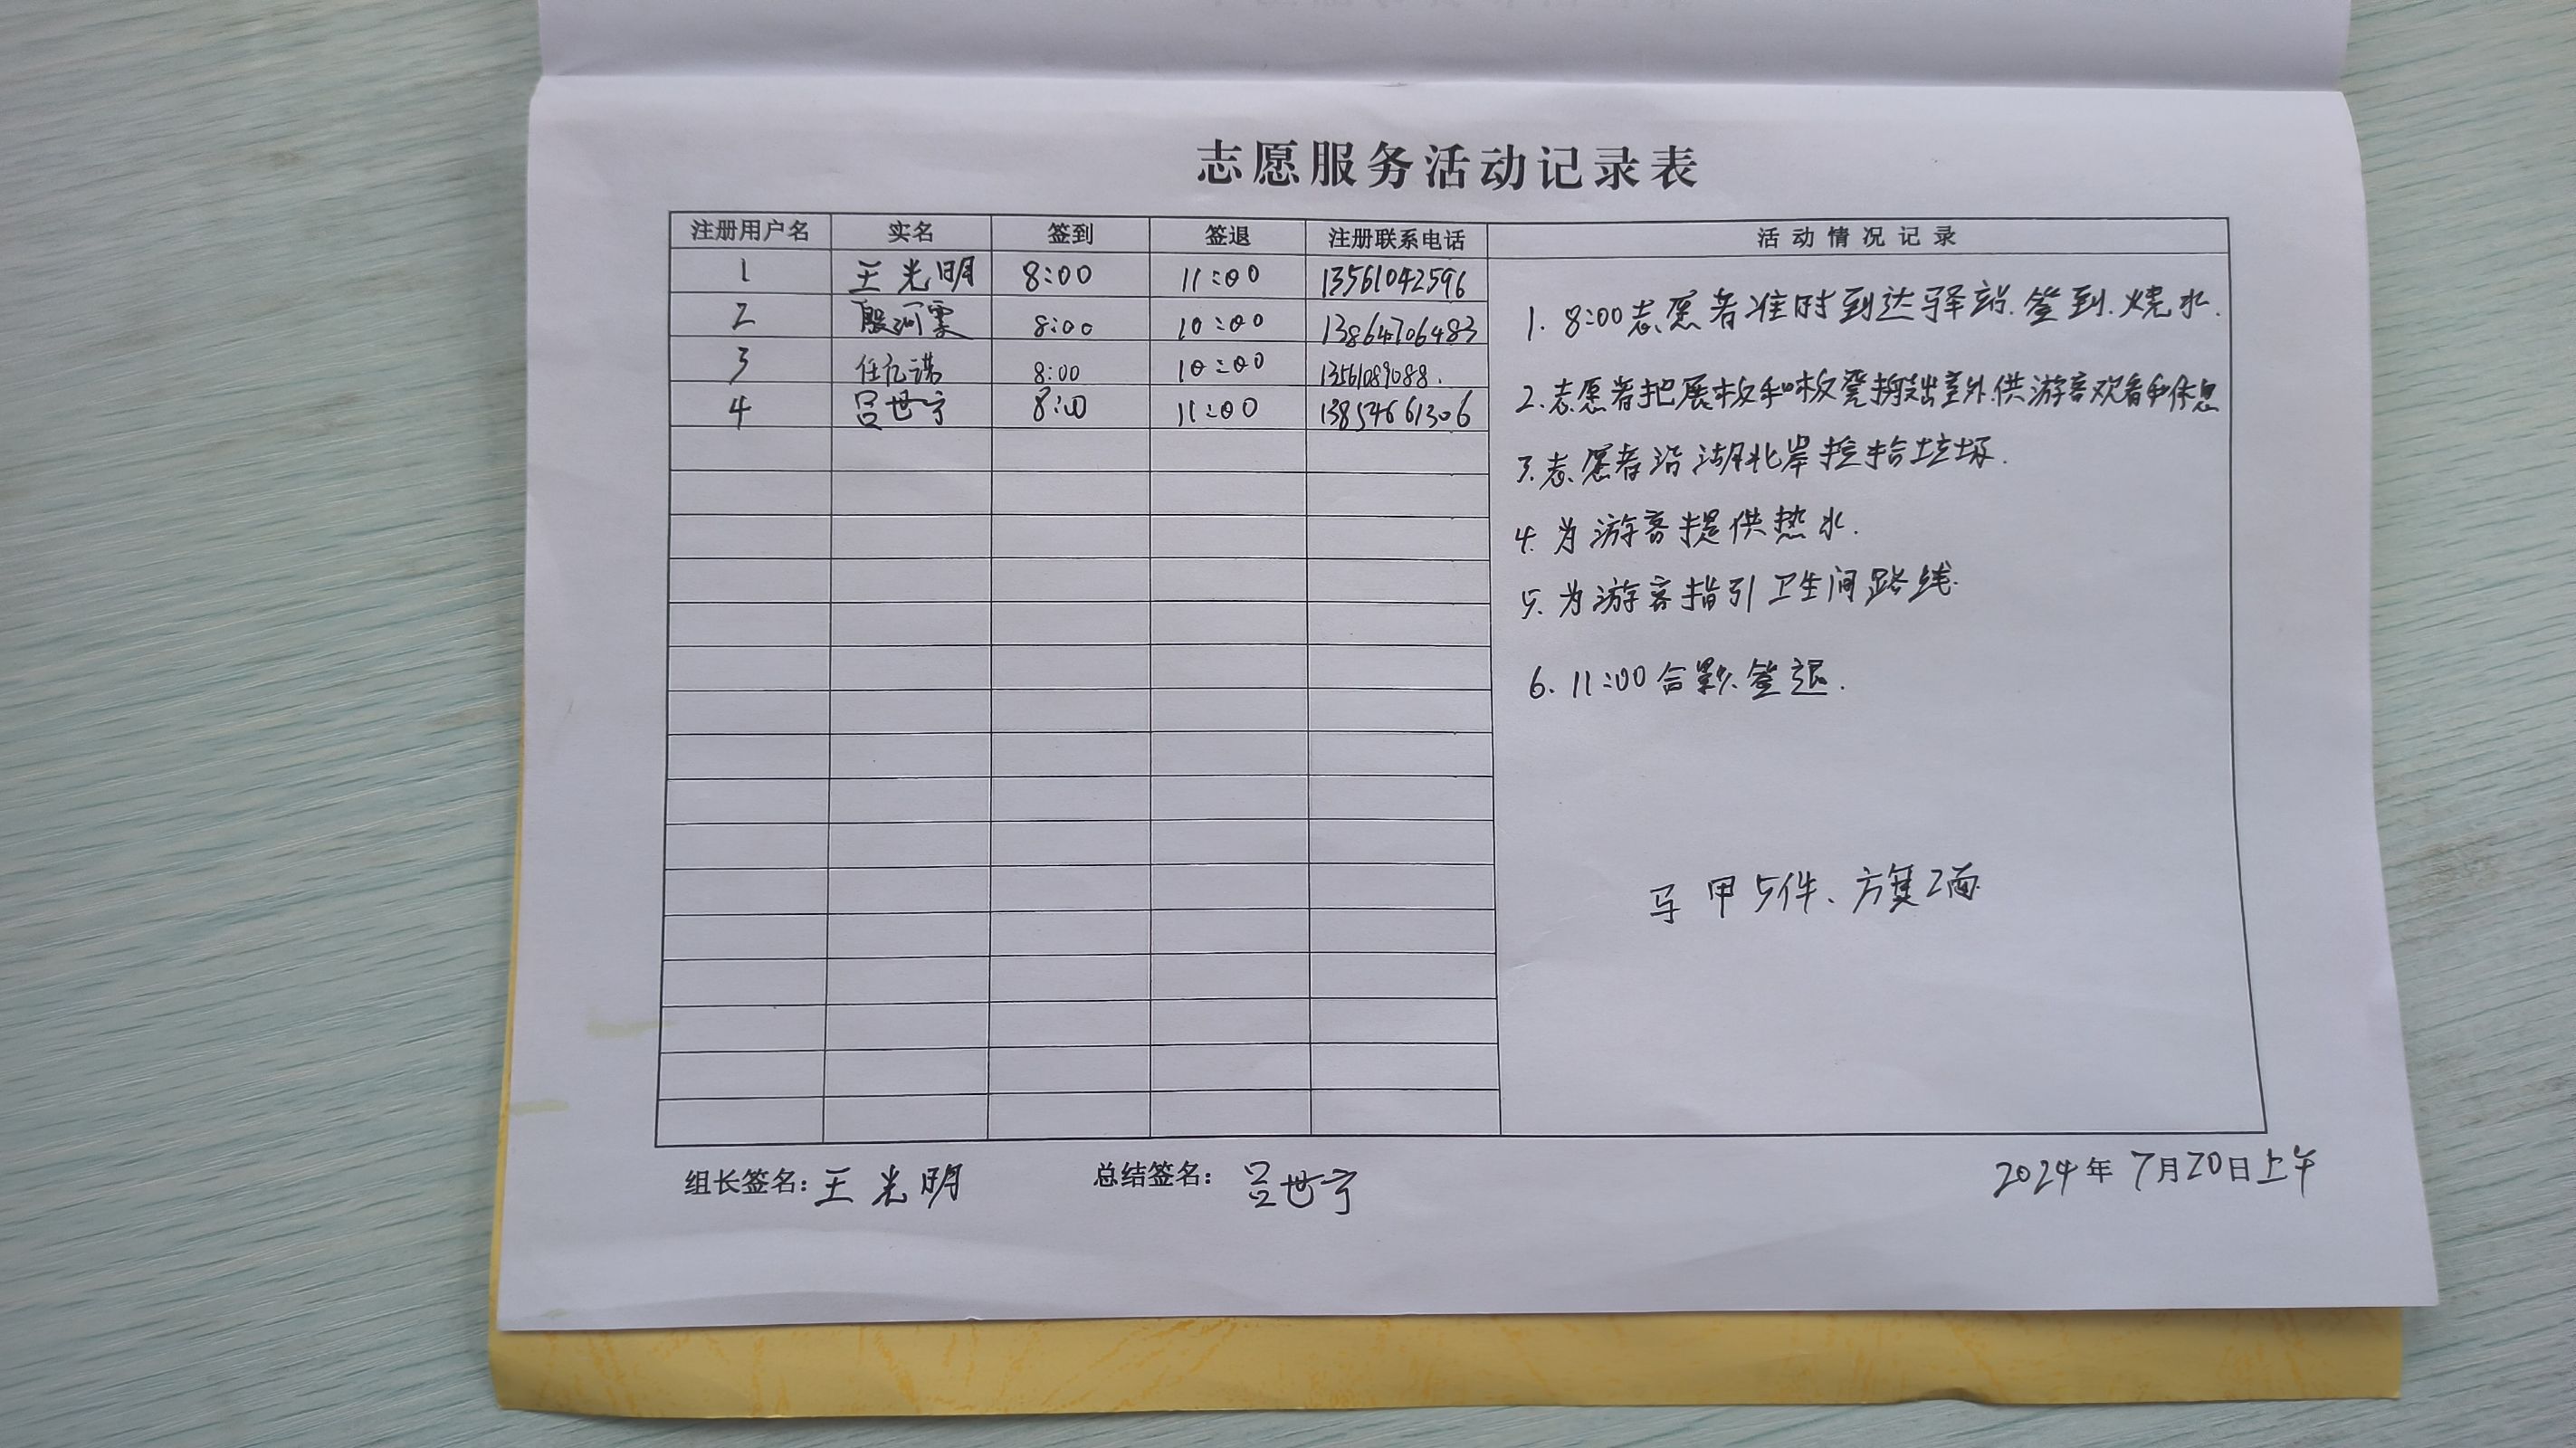 志愿服务活动记录表
注册用户名 实名 签到 签退 注册联系电话 活动情况记录
1 王光明 8:00 11:00 13561042596
2 殷 8:00 10:00 13864706483
3 任亿诺 8:00 10:00 13561089088.
4 吕世宁 8:00 11:00 13854661306
1. 8:00志愿者准时到达驿站.签到.烧水.
2.志愿者把展板和板凳搬出室外.供游客观看和休息
3.志愿者沿湖北岸捡拾垃圾.
4.为游客提供热水.
5.为游客指引卫生间路线.
6. 11:00合影.签退.
马甲5件、方旗2面
组长签名：王光明 总结签名：吕世宁 2024年7月20日上午